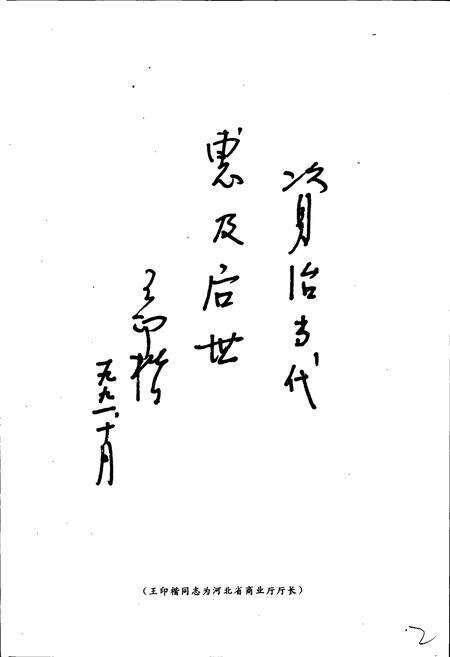 资治当代
惠及后世
王印楷
一九九一、十月
(王印楷同志为河北省商业厅厅长)
2